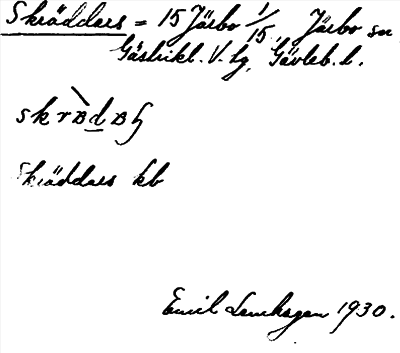 Skräddars = 15 Järbo 1/15, Järbo sn
Gästrikl. V. tg, Gävleb. l.
Skräddars kb
Emil Lenhagen 1930.